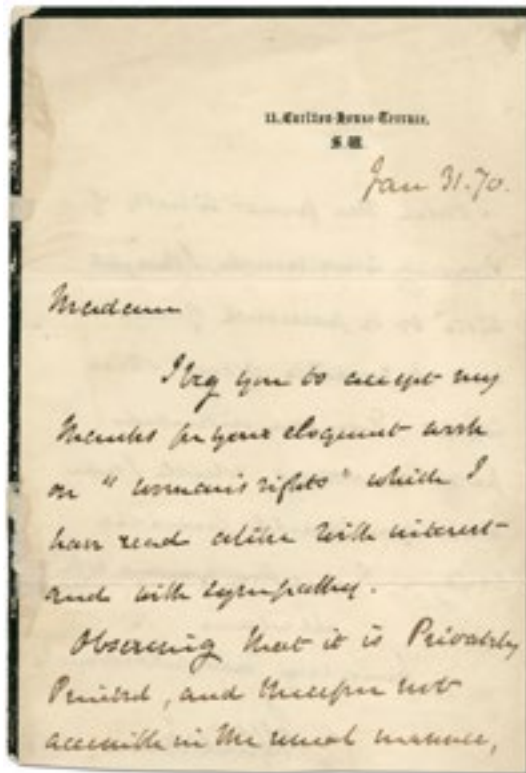 11, Carlton-House-Terrace,
S.W.
Jan 31. 70.
Madam
I beg you to accept my
thanks for your eloquent work
on "woman's rights" which I
have read alike with interest
and with sympathy.
Observing that it is Privately
Printed, and therefore not
accessible in the usual manner,